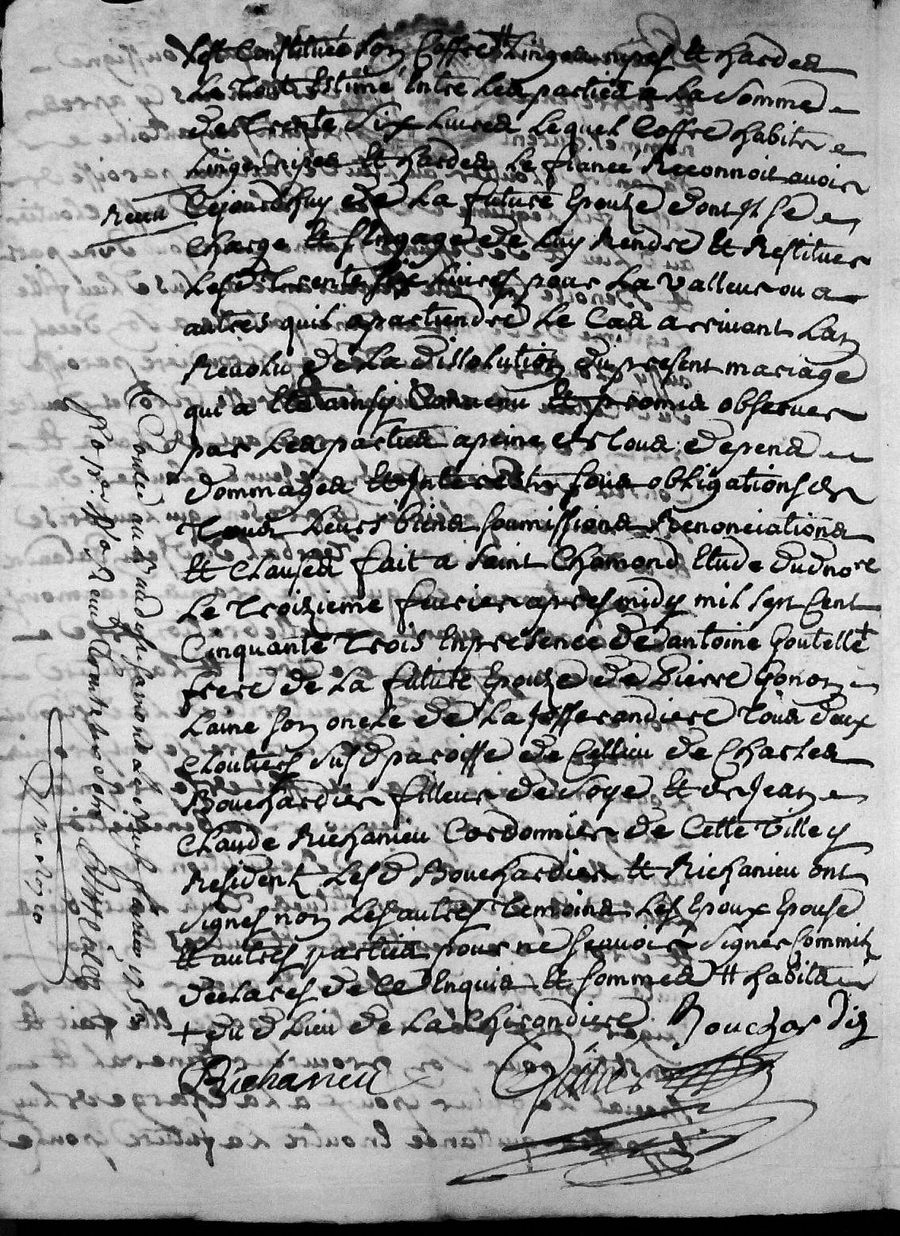 Est Constituée Son Coffre # Linges nipes Et hardes
Le tout Estimé Entre Les parties a La Somme
de trente Six Livres Lequel Coffre habits
Linges nipes Et hardes Le fiancé Reconnoit avoir
Receu Cejourdhuy de La future Epouze dont Il Se
Charge Et Sengage de Luy Rendre Et Restituer
Lesd trente Six Livres pour La Valleur ou a
autres quil apartiendra Le Cas arrivant
de La dissolution du present mariage
qui a Eté ainsy Convenu Et promis observer
par Les parties a peine de tous depens
dommages Et Interests Sous obligations de
Tous Leurs biens Soumissions Renonciations
Et Clauses fait a Saint Chamond Etude dud nore
Le Troizieme fevrier apres midy mil Sept Cent
Cinquante Trois En presence de antoine Goutelle +
frere de La future Epouze de Pierre Gonon
Laine Son oncle de La Jofferandiere Tous deux
Cloutiers Susd paroisse de Cellieu de Charles
Bouchardier filleur de Soye Et de Jean
Claude Richanieu Cordonnier de Cette Ville y
Resident Lesd Bouchardier Et Richanieu ont
Signés non Les autres temoins Les Epoux Epouse
Et autres parties pour ne Scavoir Signer
de Ce Enquis Et Sommés # habits
+ du d Lieu de La Chirandiere Bouchardier
Richanieu
Controllé a St Chamond Le neuf fevrier 1753